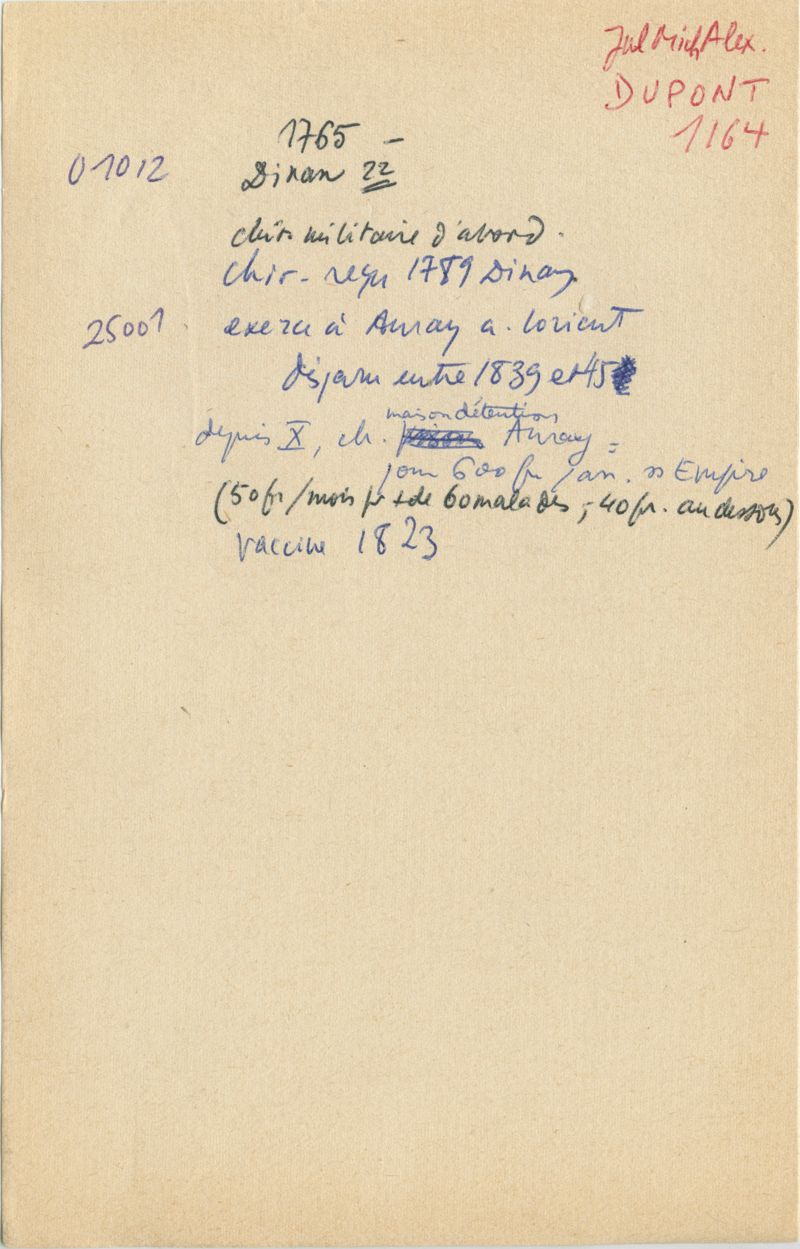 Jul Mich Alex.
DUPONT
1164
1765 –
01012 Dinan 22
chir. militaire d'abord.
chir. reçu 1789 Dinan
25001 exerce à Auray a. Lorient
disparu entre 1839 et 45
maison détention
depuis X, ch. prison Auray =
pour 600 fr /an. ss Empire
(50 fr/mois pr + de 60 malades, 40 fr. au dessous)
vaccine 1823